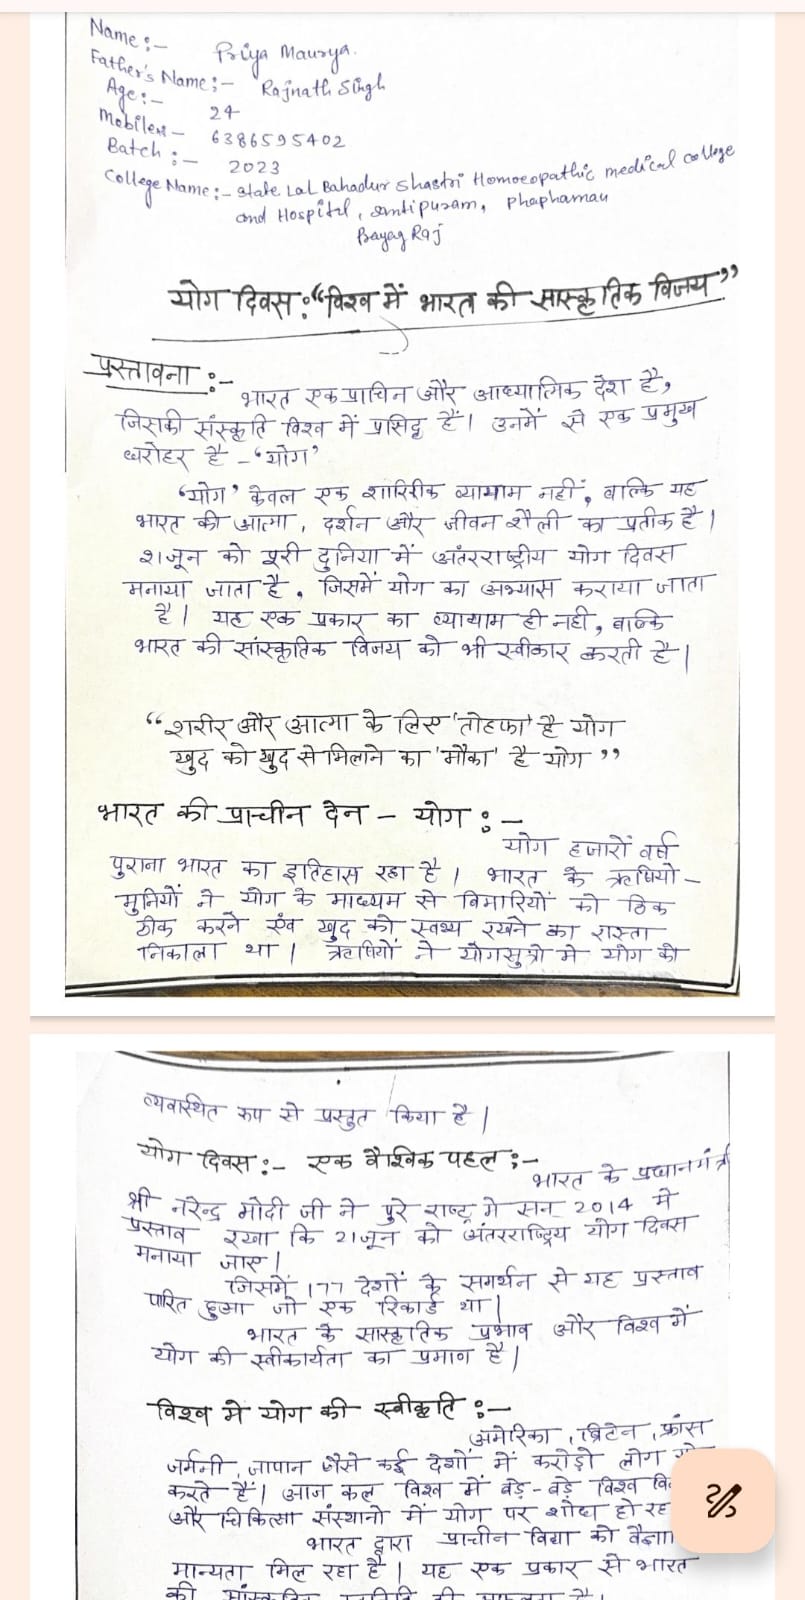 Name :- Priya Maurya.
Father's Name :- Rajnath Singh
Age :- 24
Mobile - 6386595402
Batch :- 2023
College Name :- State Lal Bahadur Shastri Homoeopathic medical college
and Hospital, Santipuram, Phaphamau
Prayag Raj
योग दिवस : “विश्व में भारत की सास्कृतिक विजय”
प्रस्तावना :-
भारत एक प्राचिन और आध्यात्मिक देश है,
जिसकी संस्कृति विश्व में प्रसिद्व हैं। उनमें से एक प्रमुख
धरोहर है - ‘योग’
‘योग’ केवल एक शारिरीक व्यायाम नहीं, बाल्कि यह
भारत की आत्मा, दर्शन और जीवन शैली का प्रतीक है।
21जून को पूरी दुनिया में अंतरराष्ट्रीय योग दिवस
मनाया जाता है, जिसमें योग का अभ्यास कराया जाता
है। यह एक प्रकार का व्यायाम ही नही, बाल्कि
भारत की सांस्कृतिक विजय को भी स्वीकार करती है।
“शरीर और आत्मा के लिए 'तोहफा' है योग
खुद को खुद से मिलाने का 'मौका' है योग”
भारत की प्राचीन देन - योग :-
योग हजारों वर्ष
पुराना भारत का इतिहास रहा है। भारत के ऋषियो-
मुनियों ने योग के माध्यम से बिमारियों को ठिक
ठीक करने एंव खुद को स्वस्थ रखने का रास्ता
निकाला था। ऋषियों ने योगसुत्रो मे योग की
व्यवास्थित रूप से प्रस्तुत किया है।
योग दिवस :- एक वैश्विक पहल :-
भारत के प्रधानमंत्री
श्री नरेन्द्र मोदी जी ने पुरे राष्ट्र मे सन् 2014 में
प्रस्ताव रखा कि 21जून को अंतरराष्ट्रिय योग दिवस
मनाया जाए।
जिसमें 177 देशों के समर्थन से यह प्रस्ताव
पारित हुआ जो एक रिकार्ड था।
भारत के सास्कृतिक प्रभाव और विश्व में
योग की स्वीकार्यता का प्रमाण है।
विश्व मे योग की स्वीकृति :-
अमेरिका, ब्रिटेन, फ्रांस
जर्मनी, जापान जैसे कई देशों में करोड़ो लोग
करते हैं। आज कल विश्व में बड़े-बड़े विश्व
और चिकित्सा संस्थानो में योग पर शोध हो
भारत द्वारा प्राचीन विद्या को
मान्यता मिल रहा है। यह एक प्रकार से भारत